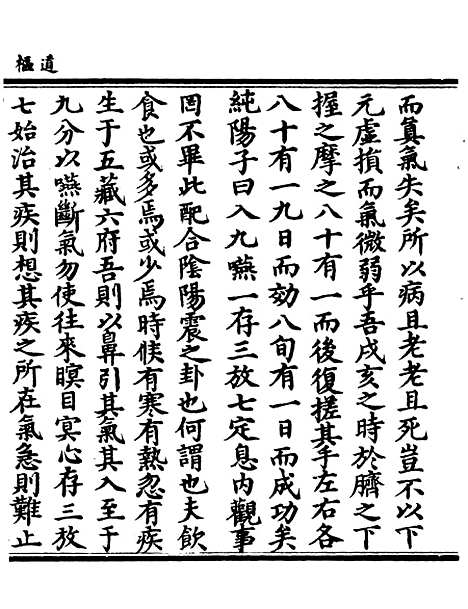 道樞
而眞氣失矣所以病且老老且死豈不以下
元虛損而氣微弱乎吾戌亥之時於臍之下
握之摩之八十有一而後復搓其手左右各
八十有一九日而効八旬有一日而成功矣
純陽子曰入九嚥一存三放七定息內觀事
罔不畢此配合陰陽震之卦也何謂也夫飲
食也或多焉或少焉時候有寒有熱忽有疾
生于五藏六府吾則以鼻引其氣其入至于
九分以嚥斷氣勿使往來瞑目冥心存三放
七始治其疾則想其疾之所在氣急則難止